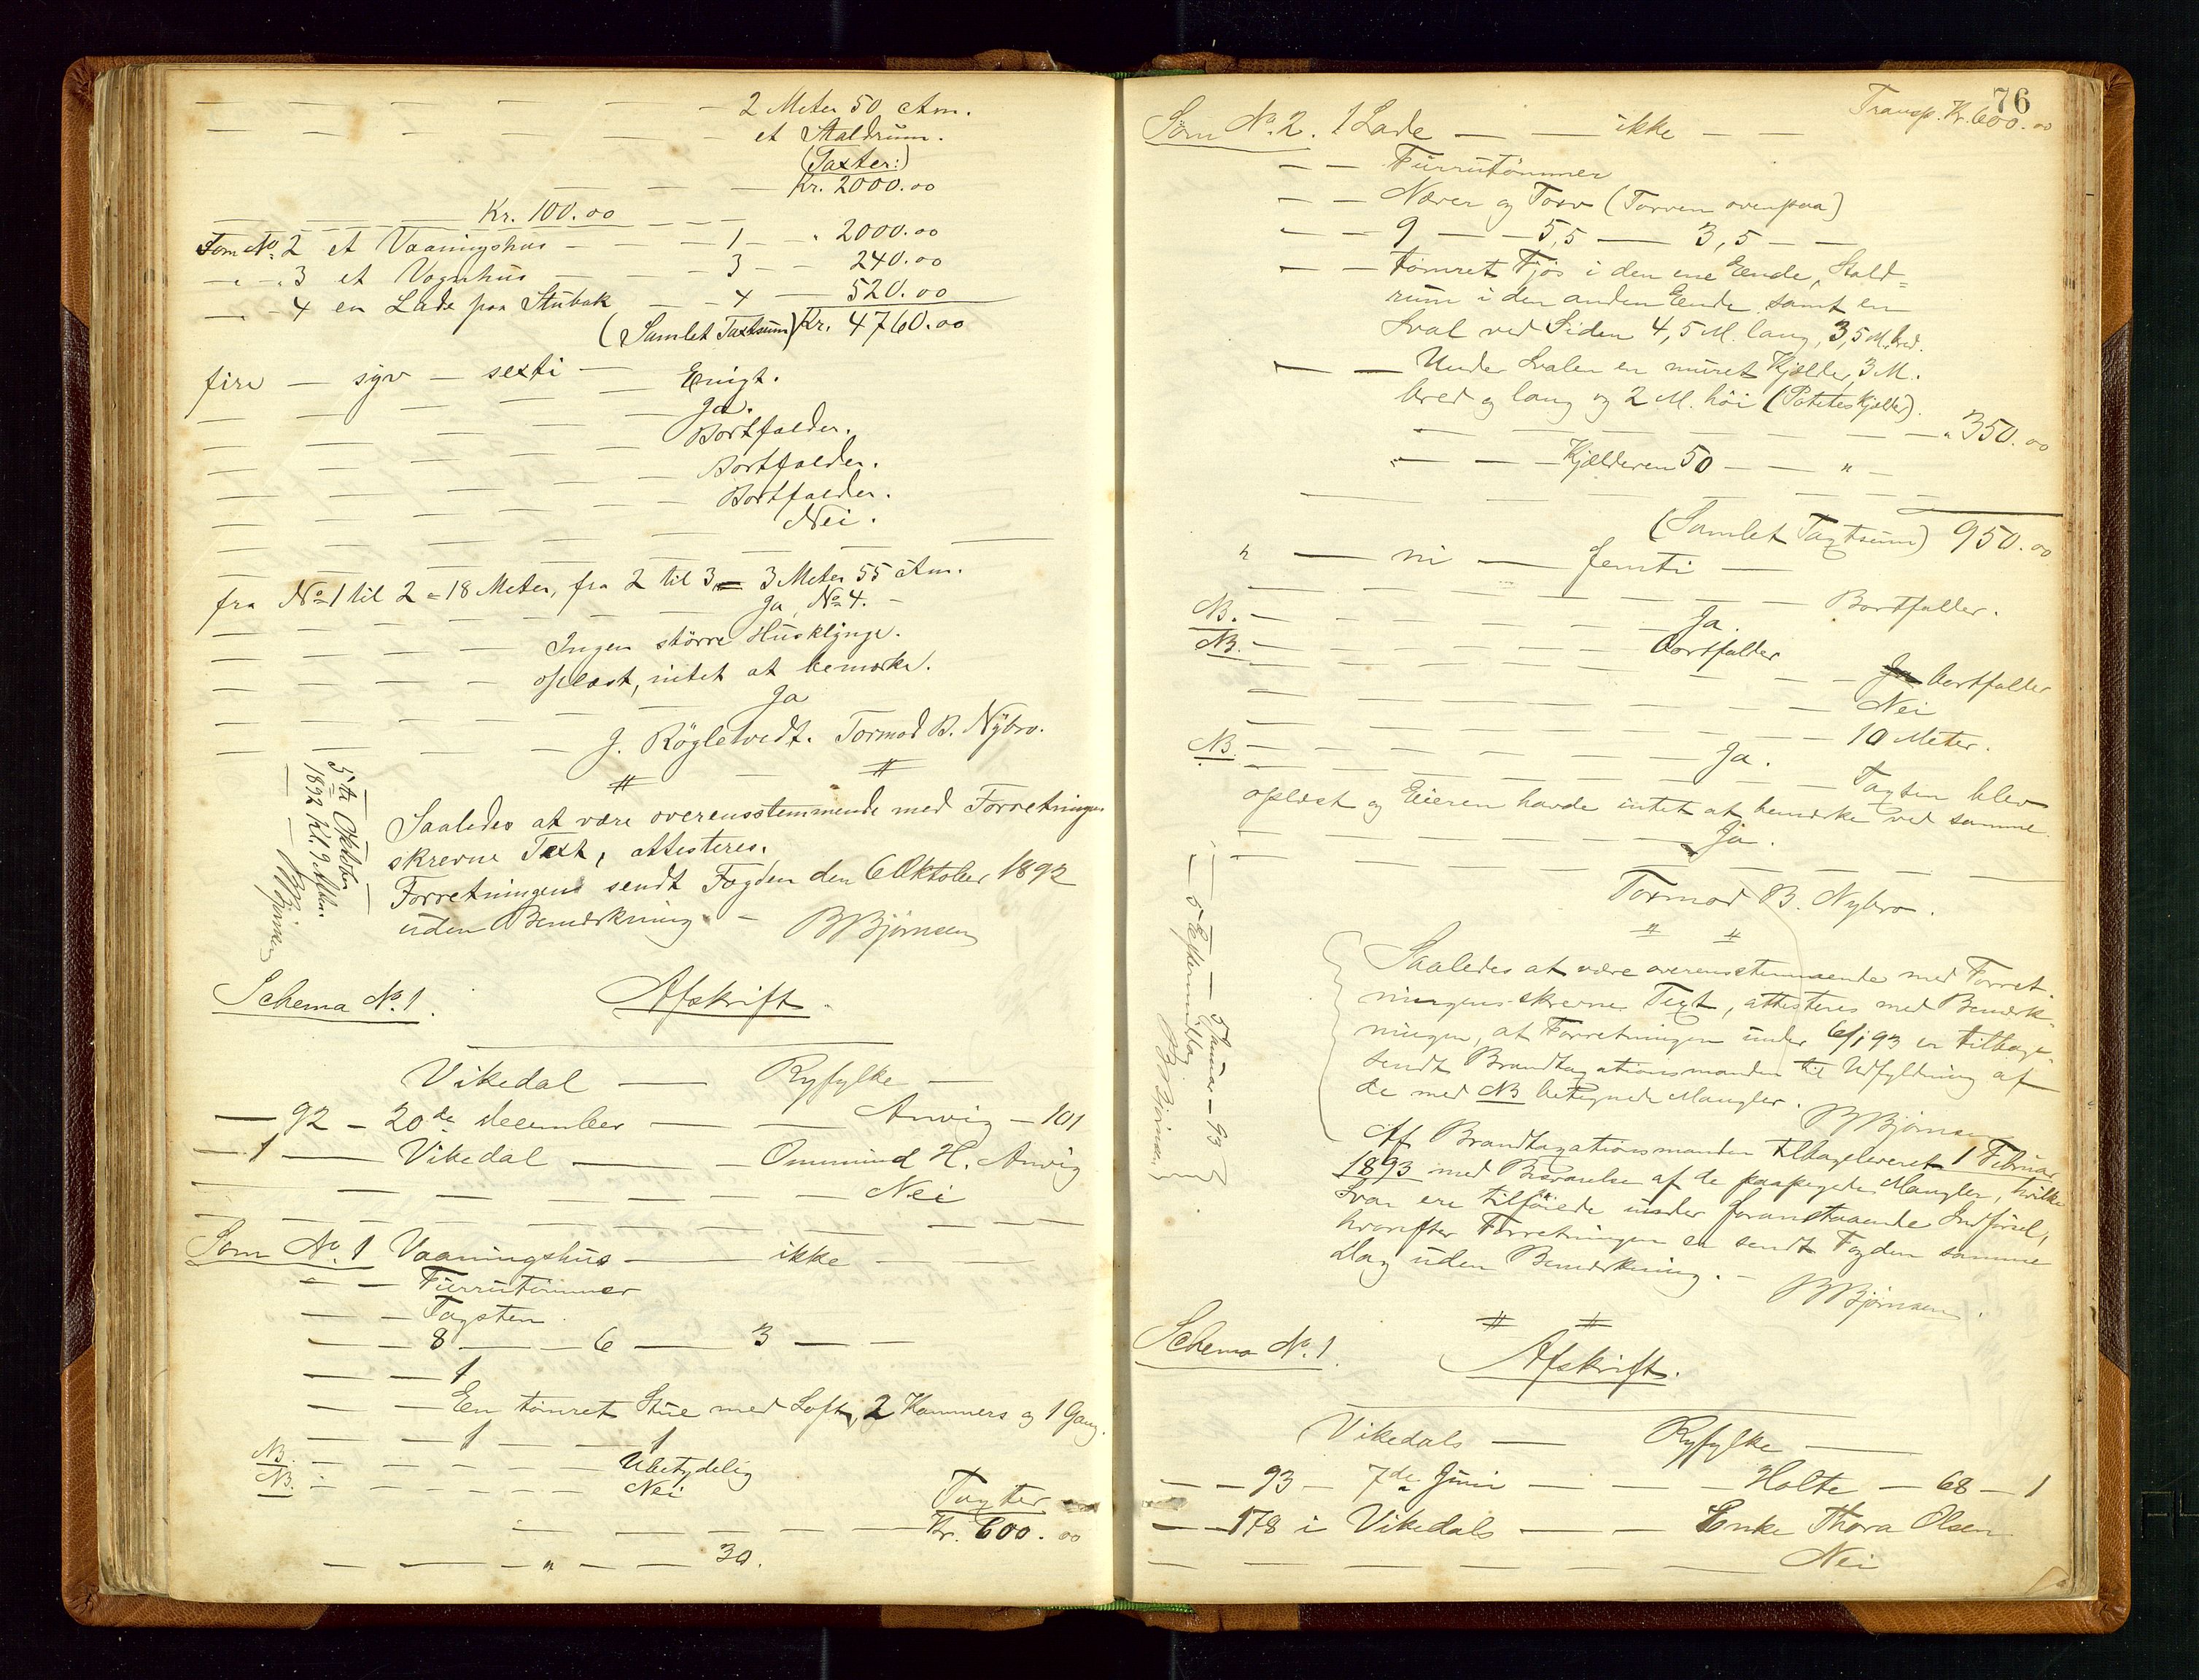 — — — — — — 2 Meter 50 ctm.
— — — — — et Staldrum.
(Taxter:)
— — — Kr. 2000.00
— — — Kr. 100.00 — — —
Som No. 2 et Vaaningshus — — — 1 — " 2000.00
— " — " 3 et Vognhus — — — 3 — — 240.00
— " — 4 en Lade paa Stubak — — 4 — 520.00
(Samlet Taxtsum) Kr. 4760.00
fire — syv — sexti — Enigt.
— — — — — Ja.
— — — — — Bortfalder.
— — — — — Bortfalder.
— — — — — Bortfalder.
— — — — — Nei.
— — — — — — — —
fra No 1 til 2 = 18 Meter, fra 2 til 3 = 3 Meter 55 ctm.
— — — — — Ja, No 4. —
— — — — Ingen större Husklynge.
— — — — oplæst, intet at bemærke.
— — — — — Ja
— — — — J. Röglewedt. Tormod B. Nybro.
# — #
5te Oktober
1892 Kl. 9 Fm.
BBjörnsen
Saaledes at være overensstemmende med Forretningens
skrevne Text, attesteres.
Forretningens sendt Fogden den 6 Oktober 1892
uden Bemærkning. — BBjørnsen
Schema No. 1. Afskrift.
Vikedal — Ryfylke —
— 92 — 20de December — — Anvig — 101
— 1 — Vikedal — — Ommund H. Anvig
— — — — — — — Nei
— — — — — — — — —
Som No. 1 Vaaningshus — — ikke — —
— — Furrutimmer
— — Tagsten.
— — 8 — 6 — 3 — —
— — 1
— — En tömret Stue med Loft, 2 Kammers og 1 Gang.
— — — 1 — — 1
NB. — — — — — Ubetydelig
NB. — — — — — Nei
Taxter
— — — — — Kr. 600.00
— — — " — — 30.
76
Transp. Kr. 600.00
Som No. 2. 1 Lade — — ikke — —
— — Furrutömmer
— — Næver og Torv (Torven ovenpaa)
— — 9 — — 5,5 — 3,5 — —
— — tömret Fjös i den ene Ende, Stald-
rum i den anden Ende samt en
Sval ved Siden 4,5 M. lang, 3,5 M. bred.
— — Under Svalen en muret Kjælder, 3 M.
bred og lang og 2 M. höi (Potetes Kjælder).
— — — — — — — " 350.00
" — — Kjælderen 50 — — " —
— — — — — — —
(Samlet Taxtsum) 950.00
" — ni — femti —
— — — — — — — Bortfalder.
NB. — — — — — — Ja.
NB. — — — — — — bortfalder
— — — — — — — — bortfalder
— — — — — — — Nei
— — — — — — — 10 Meter.
NB. — — — — — — Ja.
— — — — — — — Taxten blev
oplæst og Eieren havde intet at bemærke ved samme.
— — — — — — Ja.
— — — — — — — —
Tormod B. Nybro.
# #
5 Eftermiddag
Januar — 93
BBjörnsen
Saaledes at være overensstemmende med Forret-
ningens skrevne Text, attesteres med Bemærk-
ningen, at Forretningen under 6/1 93 er tilbage-
sendt Brandtaxationsmanden til Udfyldning af
de med NB betegnede Mangler. BBjörnsen
Af Brandtaxationsmanden tilbageleveret 1 Februar
1893 med Besvarelse af de paapegede Mangler, hvilke
Svar ere tilföiede under foranstaaende Indförsel,
hvorefter Forretningen er sendt Fogden samme
Dag uden Bemærkning. — BBjörnsen.
# #
Schema No. 1. Afskrift.
Vikedals — Ryfylke —
— — 93 — 7de Juni — — — Holte — 68 — 1
— — 178 i Vikedals — — Enke Thora Olsen
— — — — — — — Nei